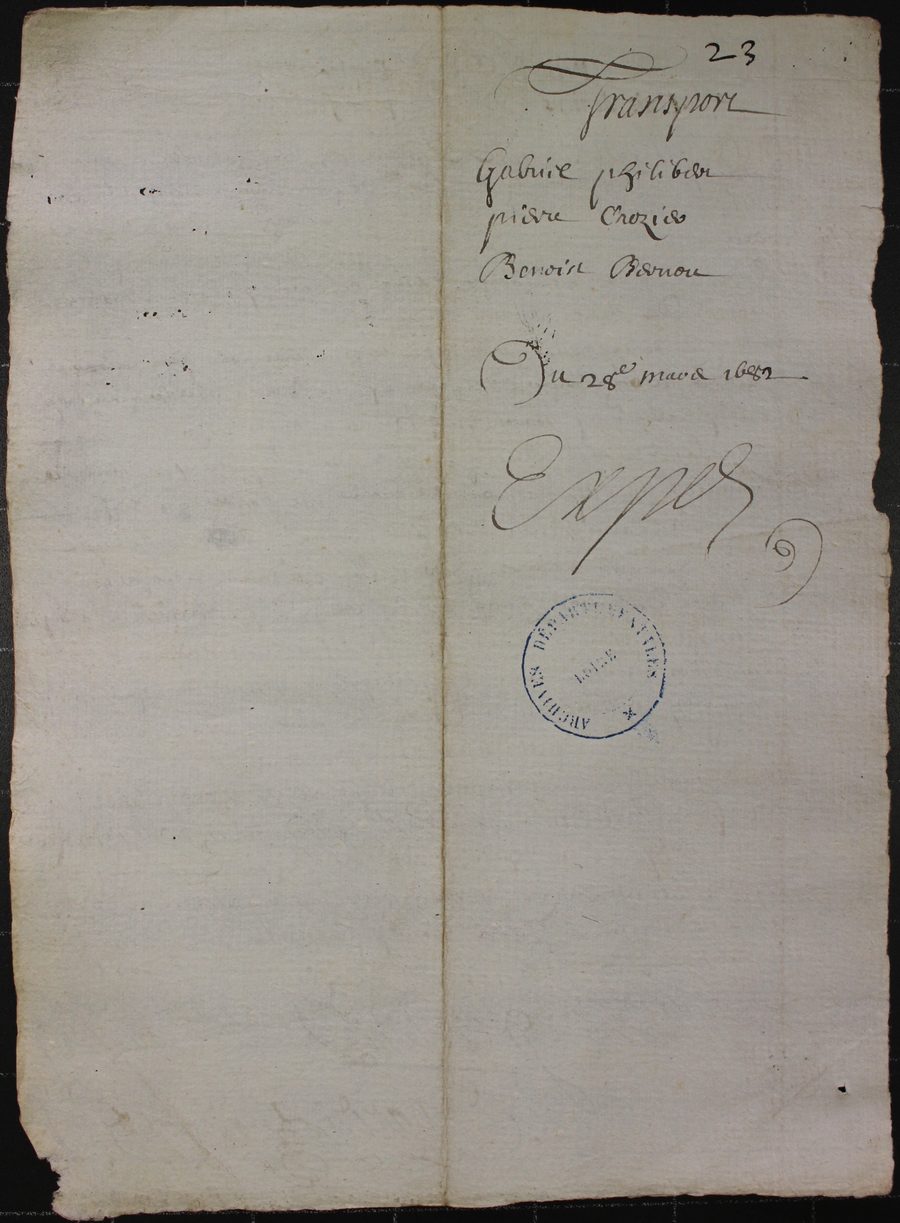 23
Transport
Gabriel philibert
pierre Crozier
Benoist Bernou
Du 28e mars 1682
Exped
ARCHIVES DÉPARTEMENTALES
LOIRE